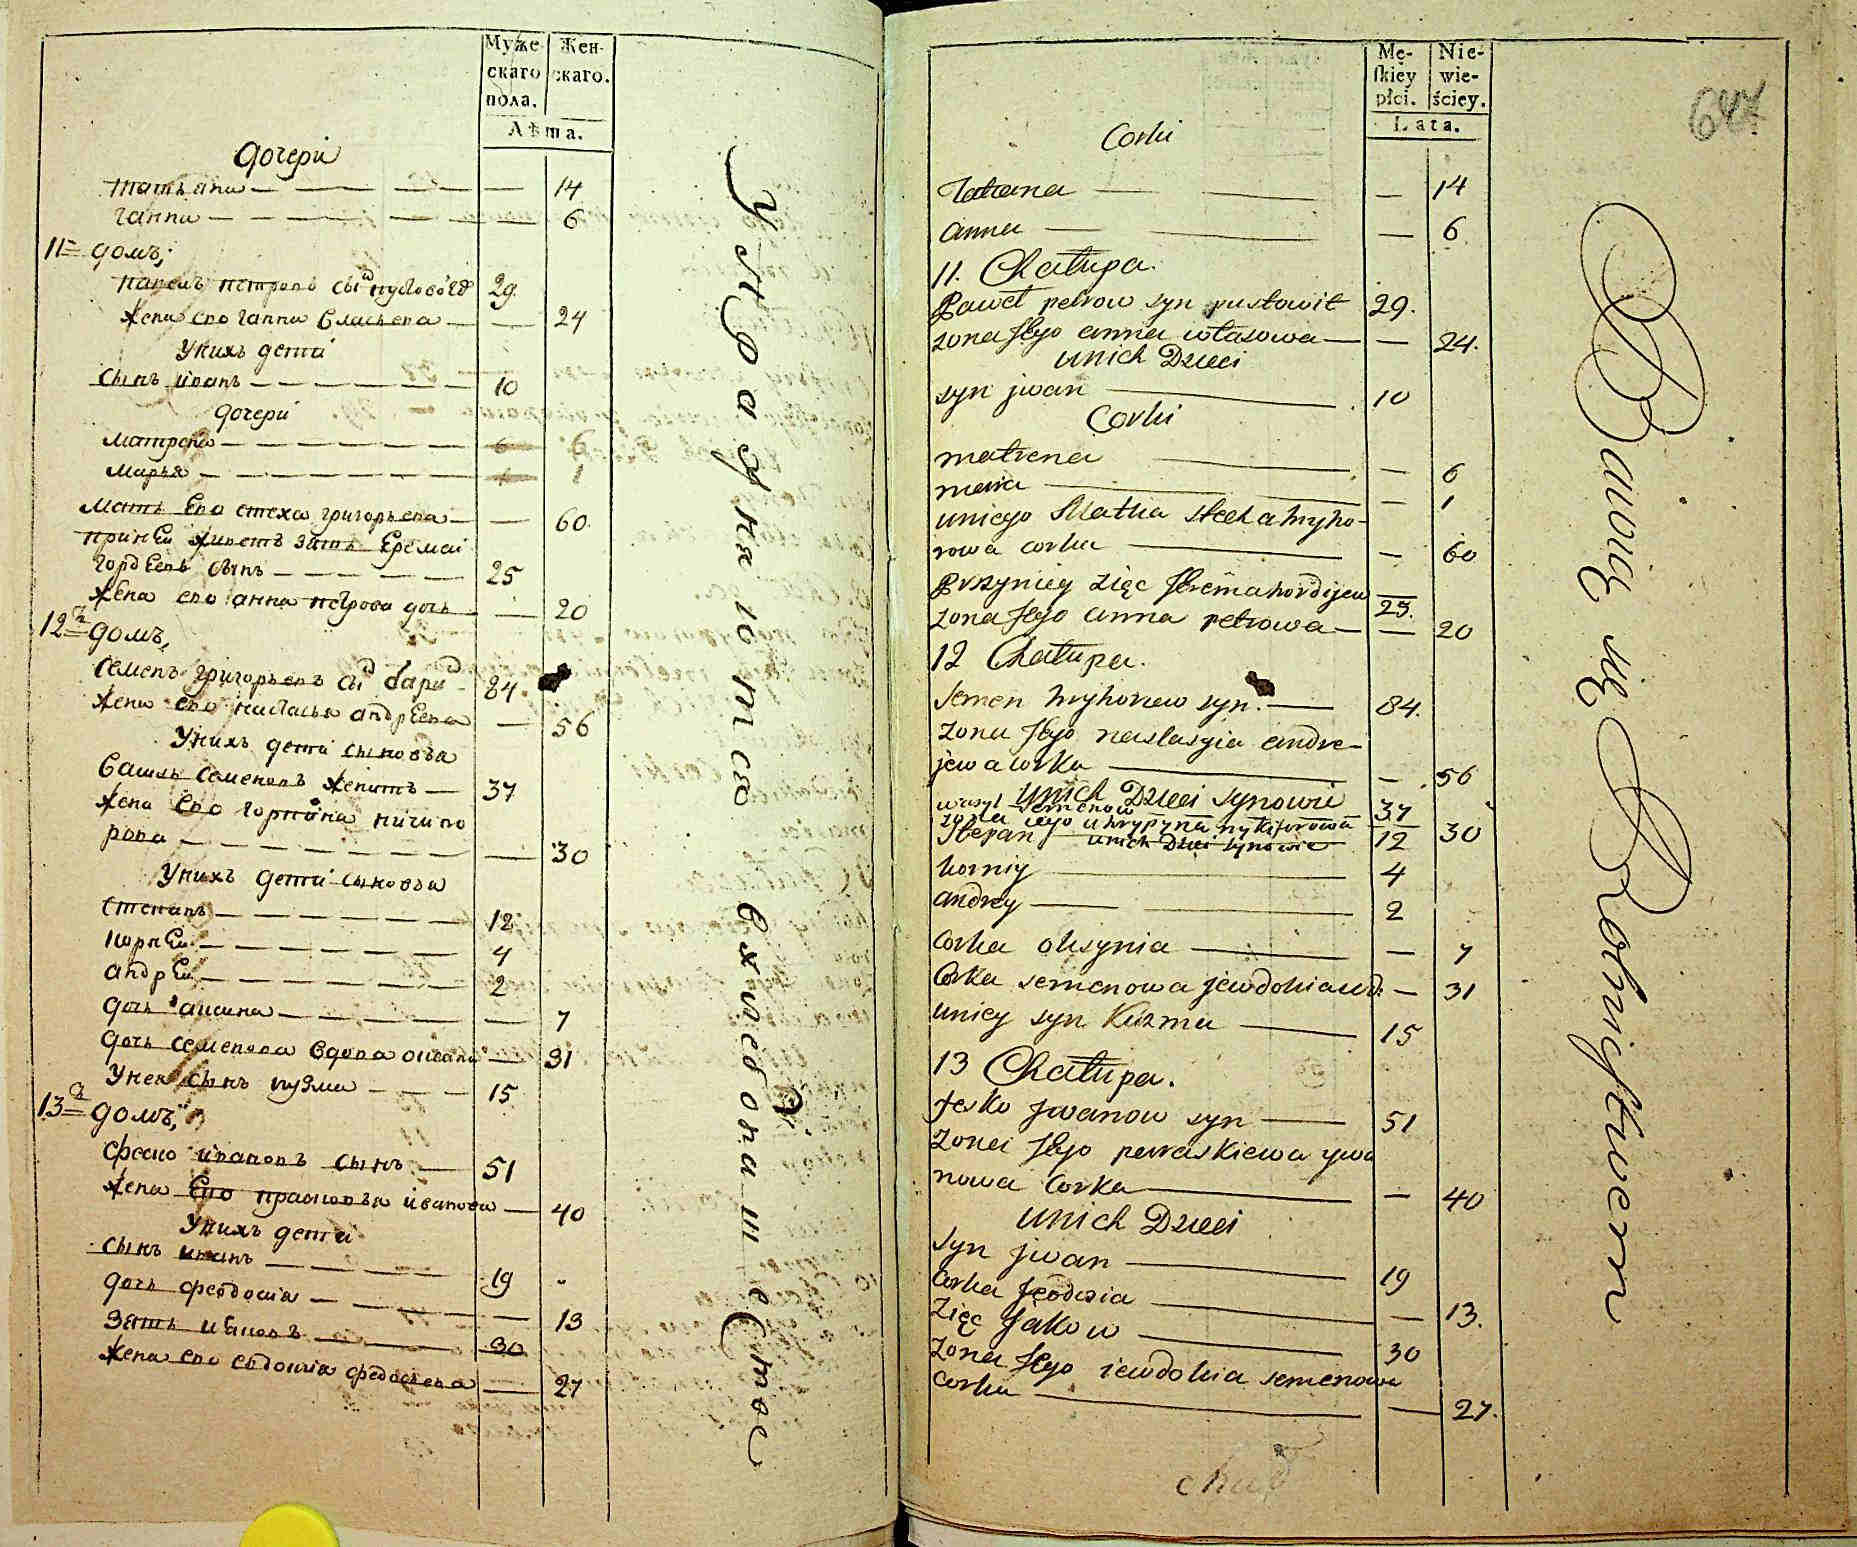 Муже- Жен-
скаго скаго.
пола.
Лѣта.
дочери
татьяна — — 14
ганна — — 6
11 домъ,
павелъ петровъ сынъ пустовойтъ 29
жена его ганна власьева — 24
Унихъ дети
сынъ иванъ — 10
дочери
матрена — 6 6
марья — 1 1
мать Его стеха григорьева — 60
приней живетъ зять Еремей
гордеевъ сынъ — 25
жена его анна петрова дочь — 20
12й домъ,
семенъ григорьевъ сынъ 84
жена его настасья андреева — 56
Унихъ дети сыновья
василь семеновъ женитъ — 37
жена Его горпина ничипо
рова — 30
Унихъ дети сыновья
степанъ — 12
корней — 4
андрей — 2
дочь — 7
дочь семенова вдова 31
Унея сынъ кузма — 15
13й домъ,
феско ивановъ сынъ — 51
жена Его прасковья иванова — 40
Унихъ дети
сынъ иванъ — 19
дочь феодосия — 13
зять яковъ — 30
жена его евдокия — 27
Украдку ютсю вхлебопашеСтве
Mę- Nie-
ſkiey wie-
płci. ściey.
Lata.
647
Corki
Tatiana — — 14
anna — — 6
11. Chałupa.
Paweł petrow syn pustowit 29.
zona Jego anna własowa — — 24.
unich Dzieci
syn jwan — 10
Corki
matrena — — 6
maria — — 1
uniego Matka stecha hryho-
rowa corka — — 60
Przyniey zięc Jerema hordijew 25.
zona Jego anna petrowa — — 20
12 Chałupa.
semen hryhoriew syn. — 84.
zona Jego nastasyia andre-
jewa corka — — 56
unich Dzieci synowie
wasyl semenow 37
zona iego uhrypyna nykiforowa 30
Stepan — unich Dzieci synowie 12
korniy — 4
andrey — 2
corka oksynia — — 7
Corka semenowa jewdokia wd: — 31
uniey syn Kuzma — 15
13 Chałupa.
fesko jwanow syn — 51
zona Jego paraskiewa ywa
nowa Corka — — 40
unich Dzieci
syn jwan — 19
corka feodosia — — 13.
zięc jakow — 30
zona Jego iewdokia semenowa
corka — — 27.
Bawią się Rolnictwem